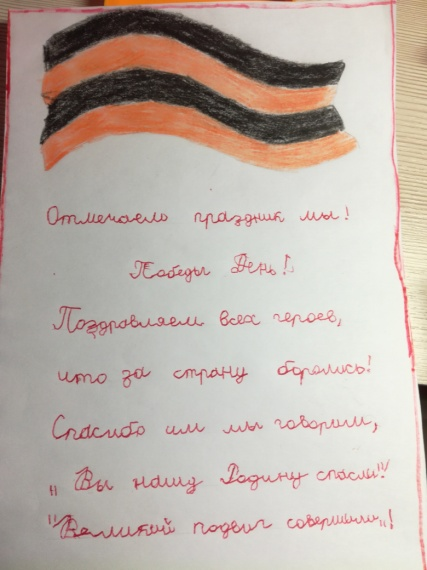 Отмечаем праздник мы!
Победы День!
Поздравляем всех героев,
что за страну боролись!
Спасибо им мы говорим,
„Вы нашу Родину спасли!"
"Великий подвиг совершили„!